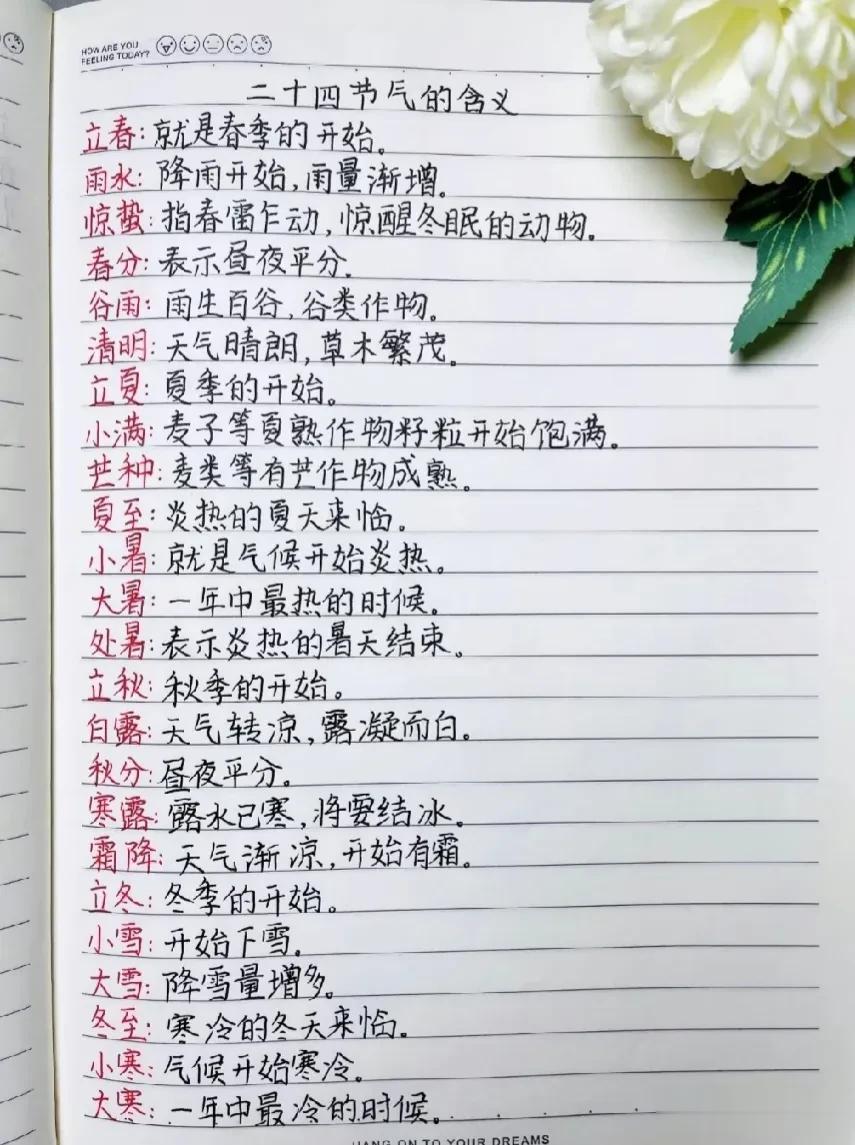 HOW ARE YOU
FEELING TODAY?
二十四节气的含义
立春:就是春季的开始。
雨水:降雨开始,雨量渐增。
惊蛰:指春雷乍动,惊醒冬眠的动物。
春分:表示昼夜平分.
谷雨:雨生百谷,谷类作物。
清明:天气晴朗,草木繁茂。
立夏:夏季的开始。
小满:麦子等夏熟作物籽粒开始饱满。
芒种:麦类等有芒作物成熟。
夏至:炎热的夏天来临。
小暑:就是气候开始炎热。
大暑:一年中最热的时候。
处暑:表示炎热的暑天结束。
立秋:秋季的开始。
白露:天气转凉,露凝而白。
秋分:昼夜平分。
寒露:露水已寒,将要结冰。
霜降:天气渐凉,开始有霜。
立冬:冬季的开始。
小雪:开始下雪。
大雪:降雪量增多。
冬至:寒冷的冬天来临。
小寒:气候开始寒冷。
大寒:一年中最冷的时候。
HANG ON TO YOUR DREAMS